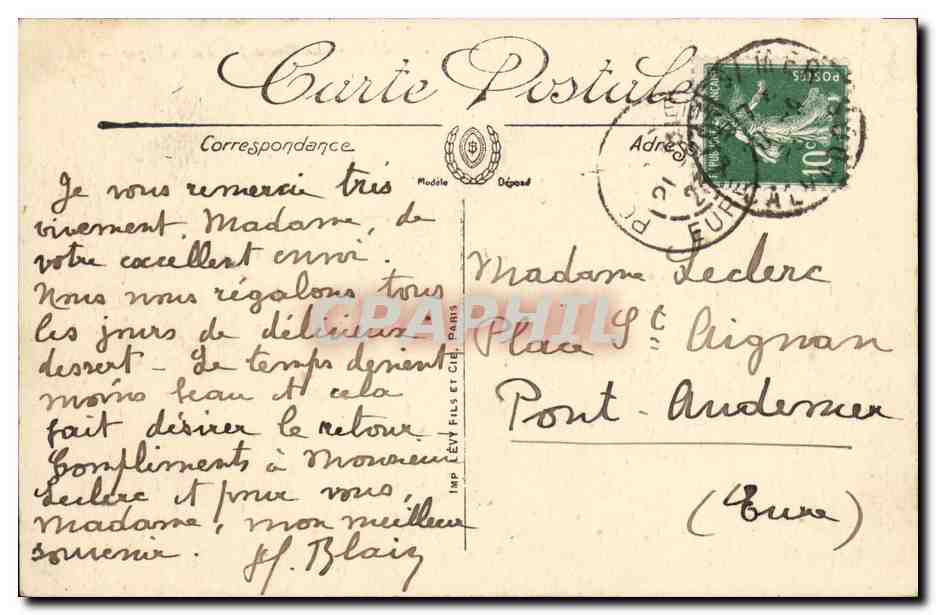 Carte Postale
Correspondance
Adresse
Modèle Déposé
POSTES
10c
EURE
21
Je vous remercie très
vivement, Madame, de
votre excellent envoi.
Nous nous régalons tous
les jours de délicieux
dessert - Le temps devient
moins beau et cela
fait désirer le retour.
Compliments à Monsieur
Leclerc et pour vous,
Madame, mon meilleur
souvenir.
IMP. LÉVY FILS ET CIE, PARIS
Madame Leclerc
Place St Aignan
Pont-Audemer
(Eure)
CPAPHIL